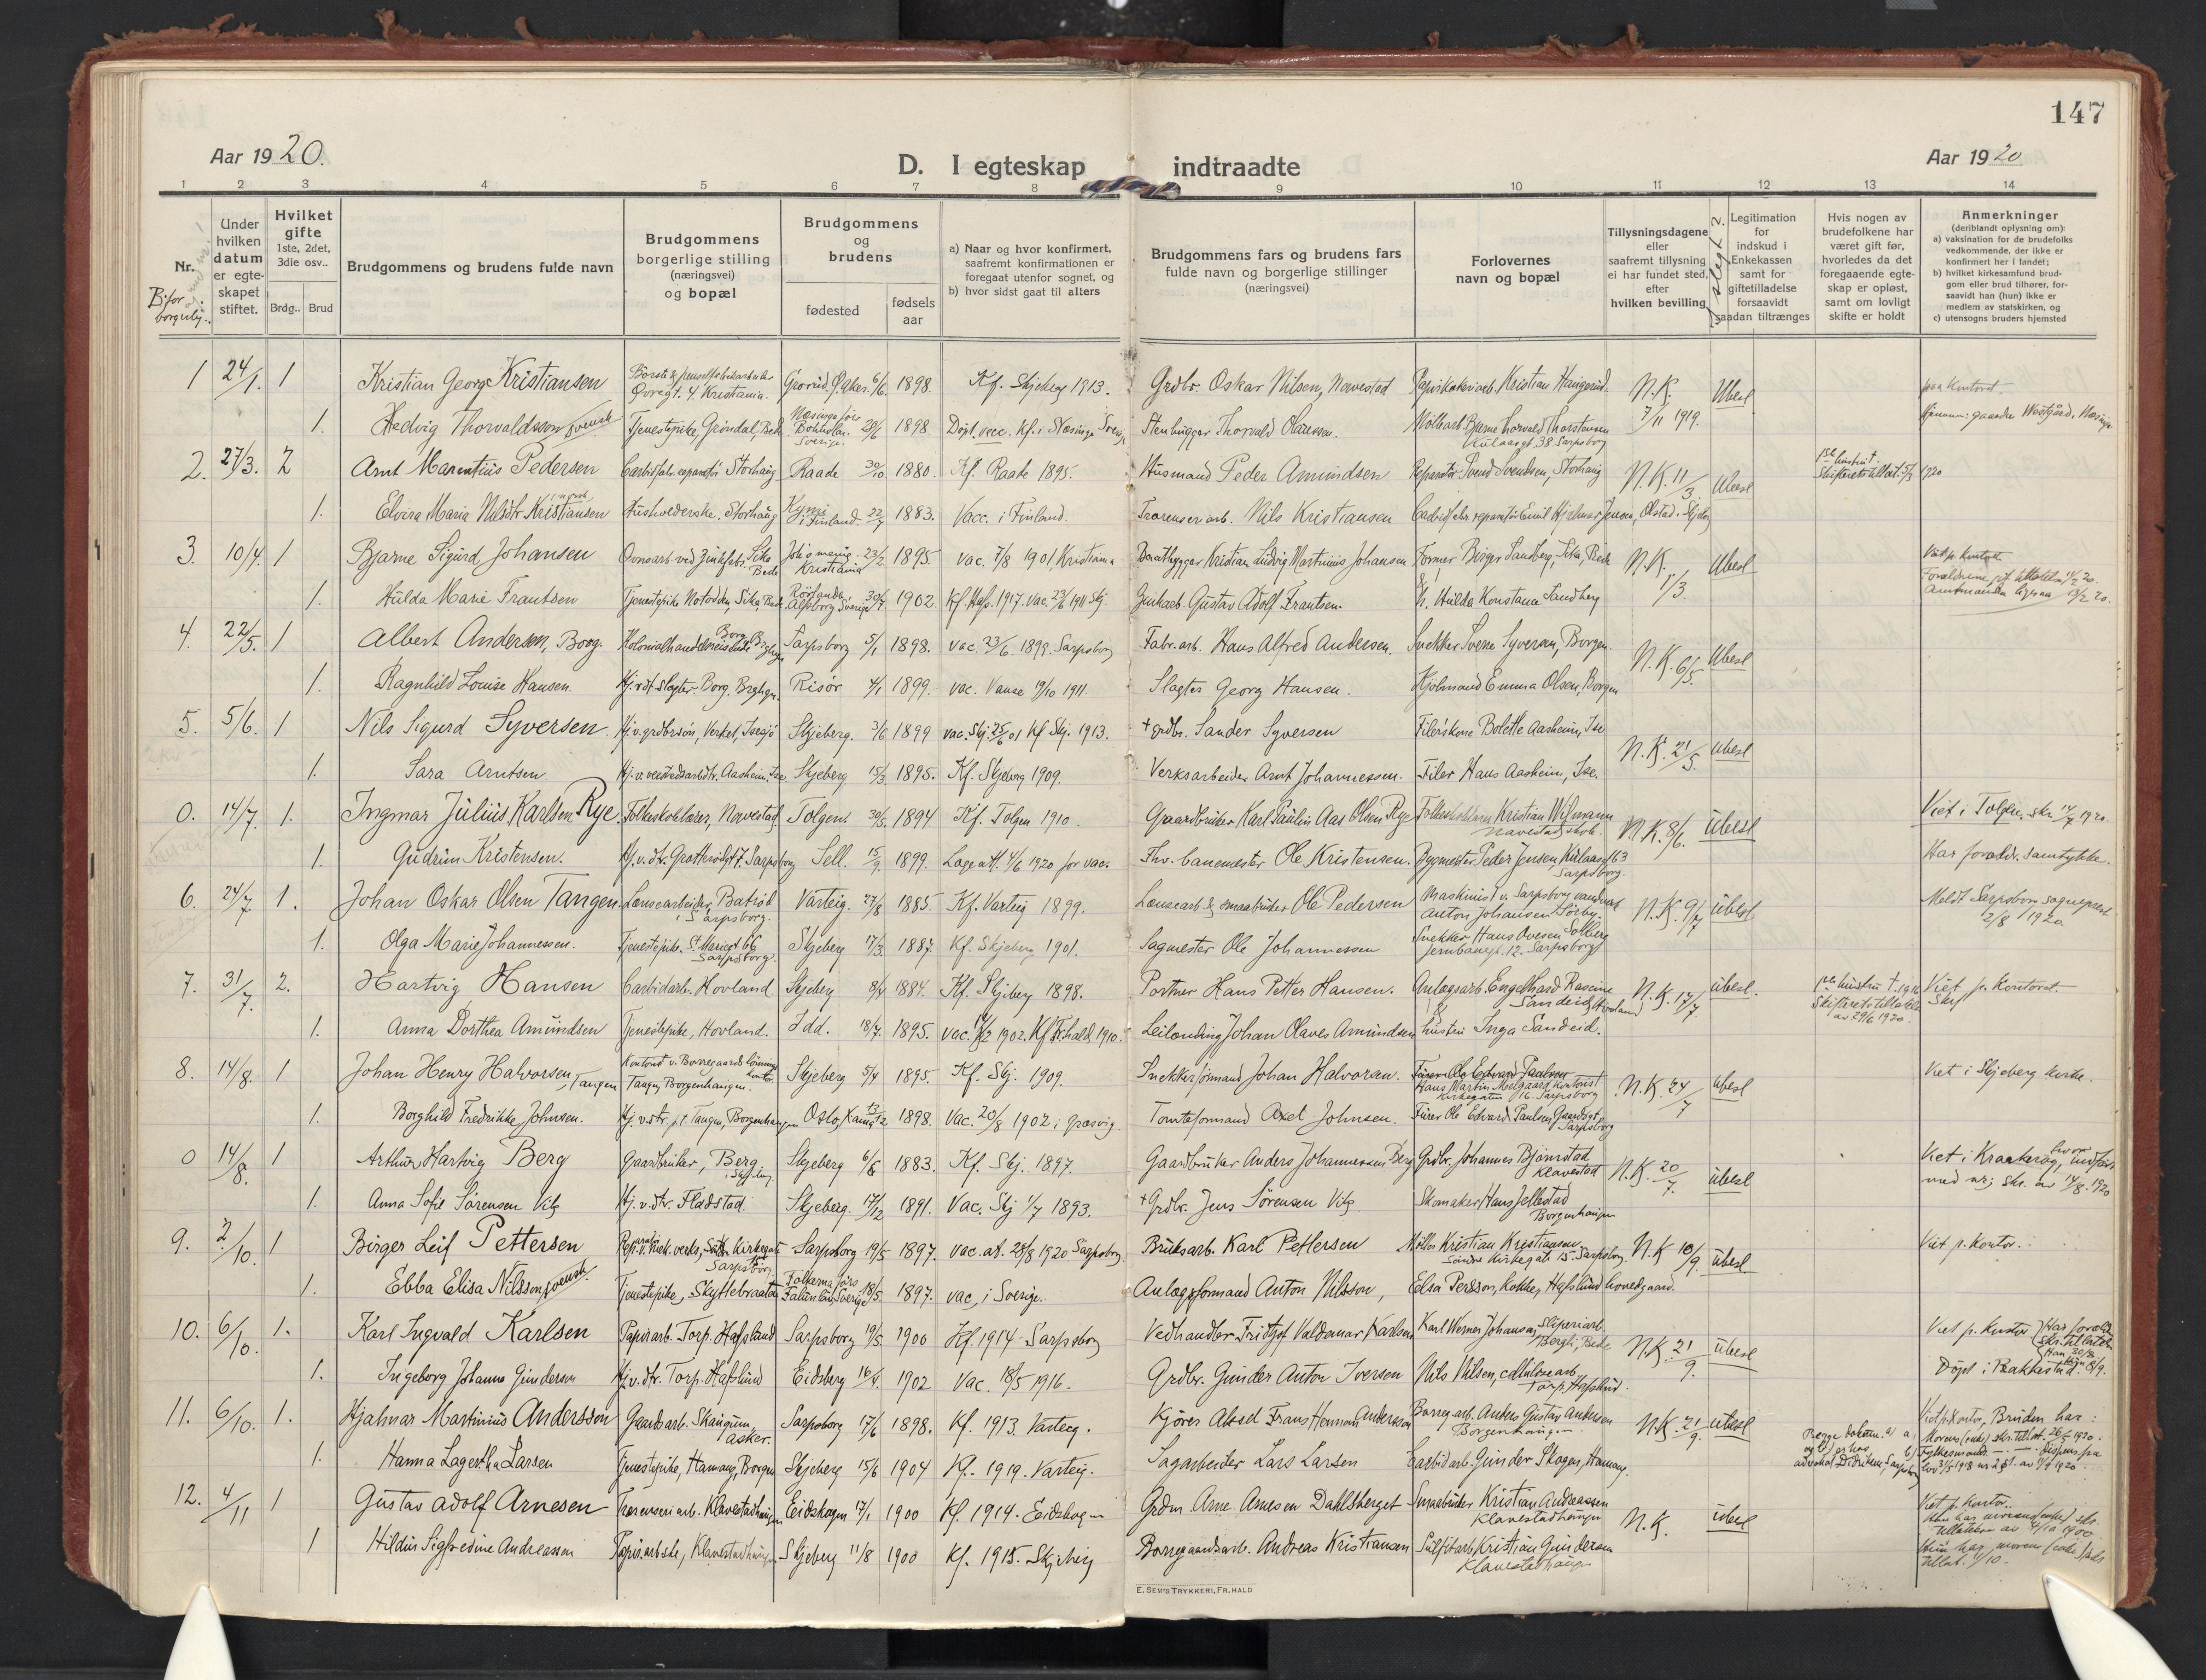 147
Aar 1920.
D. I egteskap indtraadte
Aar 1920
1 2 3 4 5 6 7 8 9 10 11 12 13 14
Nr.
Under hvilken datum er egteskapet stiftet.
Hvilket gifte 1ste, 2det, 3die osv..
Brdg.. Brud
Brudgommens og brudens fulde navn
Brudgommens borgerlige stilling (næringsvei) og bopæl
Brudgommens og brudens
fødested
fødsels aar
a) Naar og hvor konfirmert, saafremt konfirmationen er foregaat utenfor sognet, og
b) hvor sidst gaat til alters
Brudgommens fars og brudens fars fulde navn og borgerlige stillinger (næringsvei)
Forlovernes navn og bopæl
Tillysningsdagene eller saafremt tillysning ei har fundet sted, efter hvilken bevilling
Legitimation for indskud i Enkekassen samt for giftetilladelse forsaavidt saadan tiltrænges
Hvis nogen av brudefolkene har været gift før, hvorledes da det foregaaende egteskap er opløst, samt om lovligt skifte er holdt
Anmerkninger (deriblandt oplysning om):
a) vaksination for de brudefolks vedkommende, der ikke er konfirmert her i landet;
b) hvilket kirkesamfund brudgom eller brud tilhører, forsaavidt han (hun) ikke er medlem av statskirken, og
c) utensogns bruders hjemsted
1 24/1. 1 Kristian Georg Kristiansen Øvregt. 4 Kristiania. Grorud, Ø. Aker 6/6 1898. Kf. Skjeberg 1913. Grdbr. Oskar Nilsen, Navestad Kristian Haugerud N.K. Ubesl paa kontoret
1. Hedvig Thorvaldsson svensk Tjenestepike, Grøndal, Næsinge Bohuslen Sverige 28/6 1898 Døpt, vacc. Kf. i Næsinge Sverige Stenhugger Thorvald Olausson. Møllearb. Bjarne Thorvald Thorstensen Kulaasgt. 38 Sarpsborg 7/11 1919.
2. 27/3. 2 Arnt Marentius Pedersen Carbidfabr. reparatør Storhaug Raade 30/10 1880. Kf. Raade 1895. Husmand Peder Amundsen Reparatør Svend Svendsen, Storhaug N.K. 11/3 Ubesl 1ste hustru †. Skifteretts tillat. 5/3 1920
1. Elvira Maria Nilsdtr. Kristiansen Husholderske, Storhaug Kymi i Finland 22/7 1883. Vacc. i Finland. Trævarearb. Nils Kristiansen Carbidfabr. reparatør Emil Hjalmar Jensen, Olstad, Skjeberg
3. 10/4. 1 Bjarne Sigurd Johansen Ovnsarb ved Zinkfabr. Kristiania 23/2 1895. vac. 7/8 1901, Kristiania Baatbygger Kristian Ludvig Martinius Johansen Former Birger Sandberg, N.K. 1/3. Ubesl
1. Hulda Marie Frantsen Tjenestepike Alfsborg Sverige 30/7 1902. Kf. Hafs. 1917. vac. 23/6 1911 Skj. Zinkarb. Gustav Adolf Frantsen. Fr. Hulda Konstance Sandberg
4. 22/5. 1 Albert Andersen, Borg. Kolonialhandelsreisende Sarpsborg 5/1 1898. vac. 23/6 1899. Sarpsborg Fabr. arb. Hans Alfred Andersen. Snekker Sverre Syversen, Borgen. N.K. 6/5. Ubesl
1. Ragnhild Louise Hansen. Hj.v.dt slagter. Borg. Risør 4/1 1899. vac. Vanse 19/10 1911. Slagter Georg Hansen. Emma Olsen, Borgen
5. 5/6. 1 Nils Sigurd Syversen Hj.v. grdbrsøn, Verket, Isesjø Skjeberg. 3/6 1899 vac. Skj. 25/6 01 Kf Skj. 1913. † grdbr. Sander Syversen Filerskone Bolette Aasheim, Ise N.K. 21/5. ubesl
1. Sara Arntsen Aasheim, Ise. Skjeberg 15/3 1895. Kf. Skjeberg 1909. Verksarbeider Arnt Johannessen. Filer Hans Aasheim, Ise.
0. 14/7. 1. Ingmar Julius Karlsen Rye Folkeskolelærer, Navestad Tolgen. 30/5 1894 Kf. Tolgen 1910. Gaardbruker Karl Paulin Aas Olsen Rye Kristian Wilmann Navestad skole. N.K. 8/6. ubesl Viet i Tolgen, skr. 14/7 1920.
1. Gudrun Kristensen. Hj.v.dtr. Grotterødgt 7. Sarpsborg Sell. 15/9 1899. Lægeatt. 4/6 1920 for vac. Fhv. banemester Ole Kristensen. Bygmester Peder Jensen, Kulaasgt 63 Sarpsborg. Har forældr. samtykke.
6. 24/7. 1. Johan Oskar Olsen Tangen. Lænsearbeider, i Sarpsborg. Varteig. 27/8 1885. Kf. Varteig 1899. Lænsearb. & smaabruker Ole Pedersen Maskinist v. Sarpsborg vandverk Anton Johansen Sørby. N.K. 9/7 ubesl Meldt Sarpsborg sogneprest 2/8 1920.
1. Olga Marie Johannessen. Tjenestepike. St. Mariegt 66 Sarpsborg. Skjeberg 17/3. 1887. Kf. Skjeberg 1901. Sagmester Ole Johannessen Snekker Hans Ovesen Solberg Jernbanegt. 12. Sarpsborg
7. 31/7. 2. Hartvig Hansen Carbidarb. Hovland Skjeberg 8/4 1884. Kf. Skjeberg 1898. Portner Hans Petter Hansen. Anlægsarb. Engelhard Rasmus Sandeid, Hovland N.K. 17/7. ubesl. 1ste hustru †. Skifteretts tillatelse av 29/6 1920. Viet p. kontoret
1. Anna Dorthea Amundsen Tjenestepike, Hovland. Idd. 18/7. 1895. Kf. Fr.hald 1910. Leilænding Johan Olaves Amundsen & hustru Inga Sandeid.
8. 14/8. 1 Johan Henry Halvorsen, Tangen Kontorist v. Borregaards lønningskontor Tangen, Borgenhaugen. Skjeberg 5/4 1895. Kf. Skj. 1909. Snekkerformand Johan Halvorsen. Hans Martin Moelgaard kontorist Kirkegaten 16. Sarpsborg N.K. 24/7 ubesl Viet i Skjeberg kirke.
1. Borghild Fredrikke Johnsen. Hj.v.dtr. p.t. Tangen, Borgenhaugen Oslo, 13/12 1898. Vac. 20/8 1902 i Græsvig Tomteformand Axel Johnsen. Fører Ole Edvard Paulsen Sarpsborg
0 14/8. 1 Arthur Hartvig Berg Gaardbruker, Berg i Skjeberg Skjeberg 6/8 1883. Kf. Skj. 1897. Gaardbruker Anders Johannessen Berg Grdbr. Johannes Bjørnstad Klavestad N.K. 20/7. ubesl Viet i Kraakerøy, hvor indført med nr; skr. av 14/8. 1920
1. Anna Sofie Sørensen Hj.v.dtr. Fladstad. Skjeberg. 17/12 1891. Vac. Skj 1/7 1893. † Grdbr. Jens Sørensen Skomaker Hans Jellestad Borgenhaugen
9. 2/10. 1 Birger Leif Pettersen Sarpsborg Sarpsborg 19/5 1897. vac. at. 28/8 1920 Sarpsborg Bruksarb. Karl Pettersen Møller Kristian Kristiansen Søndre Kirkegate 15. Sarpsborg N.K 18/9. ubesl. Viet p. kontor.
1. Ebba Elisa Nilsson svensk. Tjenestepike, Skyttebraaten Falun län Sverige 18/5 1897. vac. i Sverige. Anlægsformand Anton Nilsson, Elsa Persson, kokke, Hafslund hovedgaard.
10. 6/10. 1. Karl Ingvald Karlsen Papirarb. Torp. Hafslund Sarpsborg 19/5 1900 Kf. 1914. Sarpsborg Vedhandler Fritjof Valdemar Karlsen Karl Werner Johansen, sliperiarb. N.K. 21/9. ubesl Viet p. kontor
1. Ingeborg Johanne Gundersen Hj.v.dtr. Torp. Hafslund Eidsberg 16/4 1902 Vac. 18/5 1916. Grdbr. Gunder Anton Iversen Nils Nilsen, cellulosearb. Torp. Hafslund. Døpt i Rakkestad
11. 6/10. 1. Hjalmar Martinius Andersson Gaardsarb. Skaugum, Asker. Sarpsborg 17/6 1898. Kf. 1913. Varteig. Kjører Aksel Frans Herman Andersson Borreg. arb. Anders Gustav Andersen Borgenhaugen N.K. 21/9. ubesl Viet p. kontor, Bruden har:
1. Hanna Lagertha Larsen Tjenestepike, Hamang, Borgen Skjeberg 15/6 1904 Kf. 1919. Varteig. Sagarbeider Lars Larsen Carbidarb. Gunder Skogen, Hamang.
12. 4/11 1 Gustav Adolf Arnesen Træsliperiarb. Klavestadhaugen Eidskogen 17/1 1900 Kf 1914. Eidskogen Grdm. Arne Arnesen Dahlsberget Smaabruker Kristian Andreassen Klavestadhaugen N.K. ubesl Viet p. kontor.
1 Hildur Sigfredine Andreassen Papirarbeiderske, Klavestadhaugen Skjeberg 11/8 1900 Kf. 1915. Skjeberg Borregaardsarb. Andreas Kristiansen Sulfitarb. Kristian Gundersen Klavestadhaugen
E. SEM'S TRYKKERI, FR.HALD